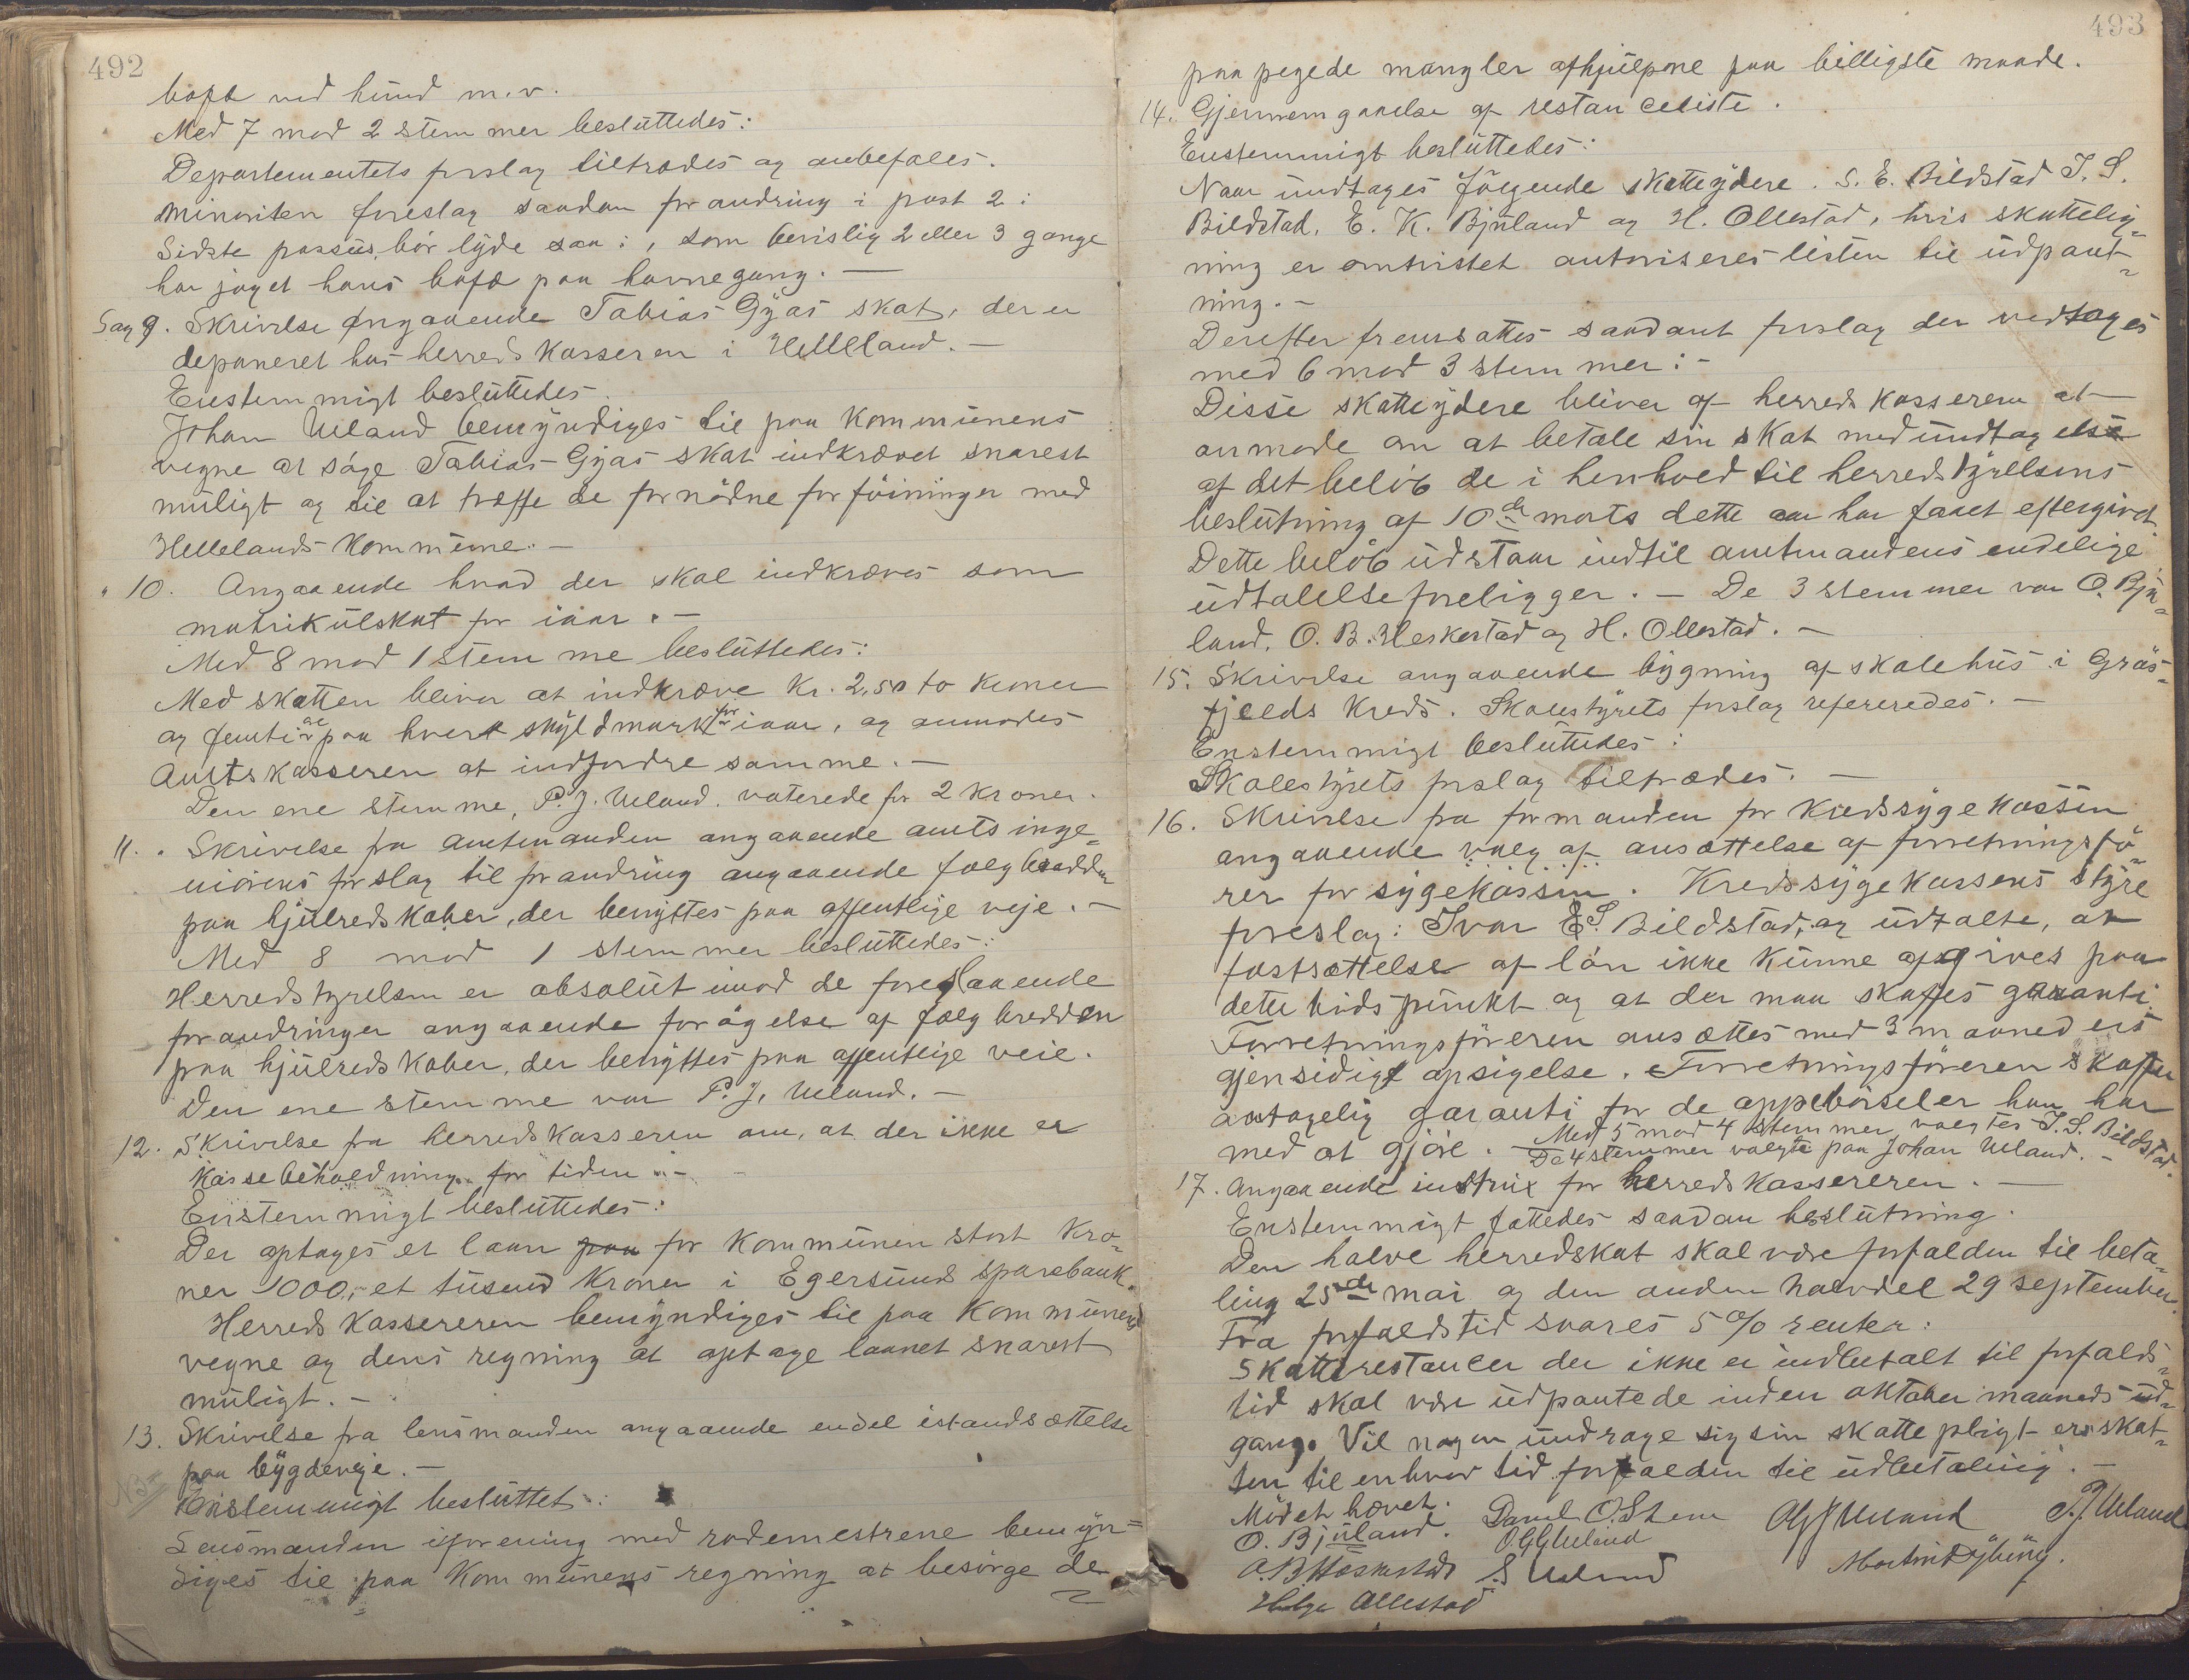 492
bofæ ved hund m.v.
Med 7 mod 2 stemmer besluttedes:
Departementets forslag tiltrædes og anbefales.
Minoriten foreslag saadan forandring i post 2:
Sidste passus bør lyde saa: , som bevislig 2 eller 3 gange
har jaget hans bofæ paa havnegang. —
Sag 9. Skrivelse angaaende Tobias Gyas skat, der er
deponeret hos herredskasseren i Helleland. —
Enstemmigt besluttedes.
Johan Ueland bemyndiges til paa kommunens
vegne at søge Tobias Gyas skat indkrævet snarest
muligt og til at træffe de fornødne forføininger med
Hellelands kommune. —
" 10. Angaaende hvad der skal indkræves som
matrikulskat for iaar. —
Med 8 mod 1 stemme besluttedes:
Med skatten bliver at indkræve Kr. 2,50 to kroner
og femti øre paa hvert skyldmark for iaar, og anmodes
Amtskasseren at indfordre samme. —
Den ene stemme, P. J. Ueland. voterede for 2 kroner.
11. . Skrivelse fra amtmanden angaaende amtsinge-
niørens forslag til forandring angaaende fælgbredden
paa hjulredskaber, der benyttes paa offentlige veje. —
Med 8 mod 1 stemmer besluttedes:
Herredstyrelsen er absolut imod de foreslaaende
forandringer angaaende forøgelse af fælgbredden
paa hjulredskaber, der benyttes paa offentlige veie.
Den ene stemme var P. J. Ueland. —
12. Skrivelse fra herredskasseren om, at der ikke er
kassebeholdning for tiden. —
Enstemmigt besluttedes:
Der optages et laan paa for kommunen stort kro-
ner 1000,- et tusend kroner i Egersunds sparebank.
Herredskassereren bemyndiges til paa kommunens
vegne og dens regning at optage laanet snarest
muligt. —
13. Skrivelse fra lensmanden angaaende endel istandsættelse
paa bygdeveje. —
Enstemmigt besluttet:
Lensmanden iforening med rodemestrene bemyn-
diges til paa kommunens regning at besørge de
493
paapegede mangler afhjulpne paa billigste maade.
14. Gjennemgaaelse af restanceliste.
Enstemmigt besluttedes:
Naar undtages følgende skatteydere. S. E. Bildstad I. S.
Bildstad, E. K. Bjuland og H. Ollestad, hvis skattelig-
ning er omtvistet autoriseres listen til udpant-
ning. —
Derefter fremsattes saadant forslag der vedtoges
med 6 mod 3 stemmer: -
Disse skatteydere bliver af herredskasseren at
anmode om at betale sin skat med undtagelse
af det beløb de i henhold til herredstyrelsens
beslutning af 10de marts dette aar har faaet eftergivet.
Dette beløb udstaar indtil amtmandens endelige
udtalelse foreligger. — De 3 stemmer var O. Bju-
land, O. B. Heskestad og H. Ollestad. —
15. Skrivelse angaaende bygning af skolehus i Gras-
fjelds kreds. Skolestyrets forslag refereredes. —
Enstemmigt besluttedes:
Skolestyrets forslag tiltrædes. —
16. Skrivelse fra formanden for kredssygekassen
angaaende valg af ansættelse af forretningsfø-
rer for sygekassen. Kredssygekassens styre
foreslog: Ivar E S. Bildstad, og udtalte, at
fastsættelse af løn ikke kunne afgives paa
dette tidspunkt og at der maa skaffes garanti.
Forretningsføreren ansættes med 3 maaneders
gjensidigt opsigelse. Forretningsføreren skaffer
antagelig garanti for de oppebørseler han har
med at gjøre. — Med 5 mod 4 stemmer valgtes I. S. Bildstad.
De 4 stemmer valgte paa Johan Ueland. —
17. Angaaende instrux for herredskassereren. —
Enstemmigt fattedes saadan beslutning.
Den halve herredskat skal være forfalden til beta-
ling 25de mai og den anden halvdel 29 september.
Fra forfaldstid svares 5 % renter:
Skatterestancer der ikke er indbetalt til forfalds-
tid skal være udpantede inden oktober maaneds ud-
gang. Vil nogen undrage sig sin skattepligt er skat-
ten til enhver tid forfalden til udbetaling. —
Mødet hævet.
O. Bjuland. Daniel O. Skern P. J. Ueland
O. G. Ueland
O. B. Heskestad S Ueland Martin Dybing.
Helge Ollestad